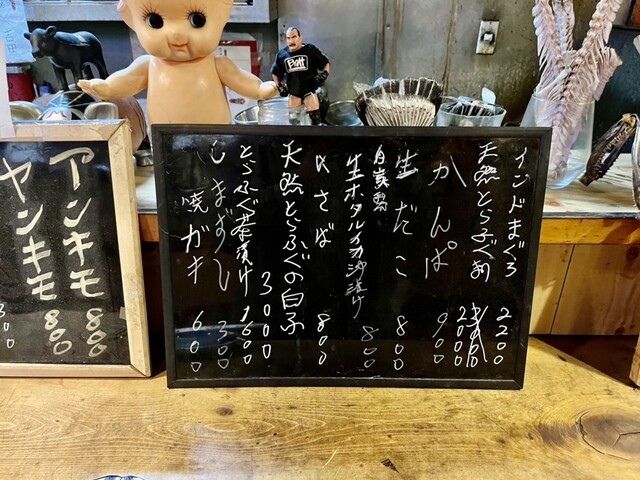 インドまぐろ 2200
天然とらふぐ刺 2000
かんぱ 900
生だこ 800
自家製
生ホタルイカ沖漬け 800
〆さば 800
天然とらふぐの白子 3000
とらふぐ茶漬け 1600
しまずし 300
焼ガキ 600
アンキモ 800
ヤンキモ 800
300
Bott